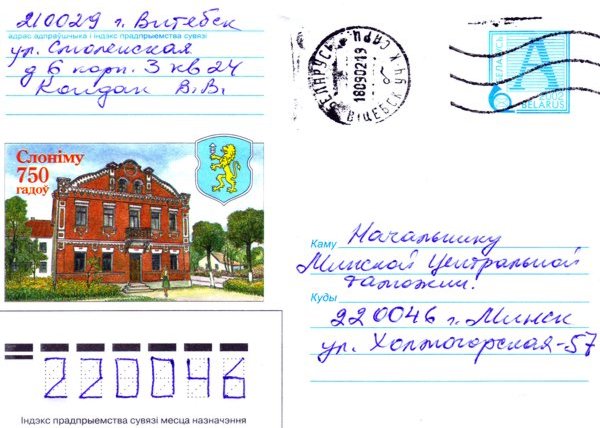 210029 г. Витебск
адрас адпраўшчыка і індэкс прадпрыемства сувязі
ул. Смоленская
д 6 корп. 3 кв 24
Колдан В.В.
БЕЛАРУСЬ
180902 19
ВІЦЕБСК
БЕЛАРУСЬ
A
2002
BELARUS
Слоніму
750
гадоў
Каму Начальнику
Минской Центральной
таможни.
Куды
220046 г. Минск
ул. Холмогорская-57
220046
Індэкс прадпрыемства сувязі месца назначэння